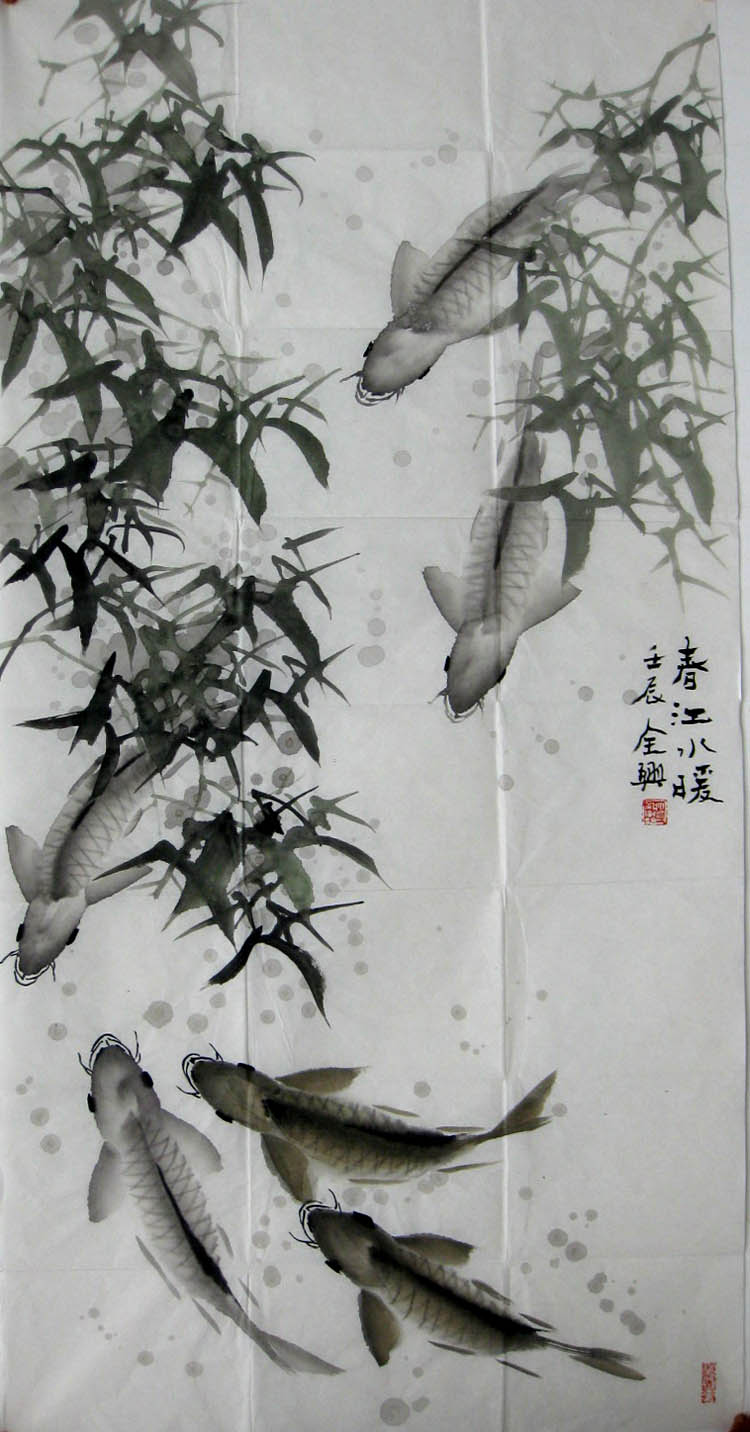 春江水暖
壬辰全興